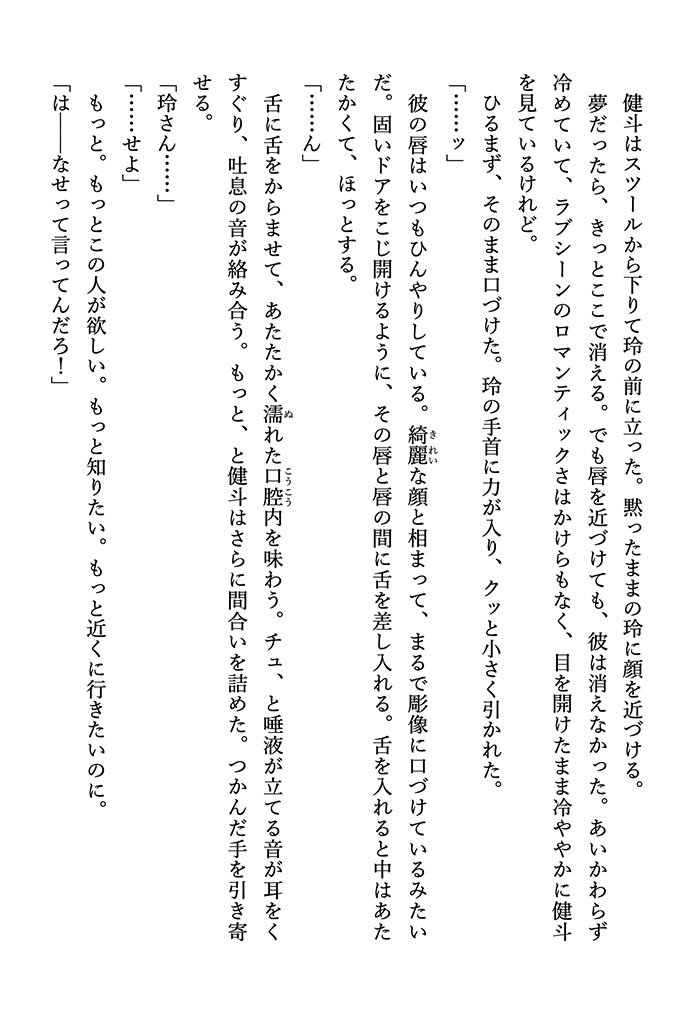 健斗はスツールから下りて玲の前に立った。黙ったままの玲に顔を近づける。
夢だったら、きっとここで消える。でも唇を近づけても、彼は消えなかった。あいかわらず
冷めていて、ラブシーンのロマンティックさはかけらもなく、目を開けたまま冷ややかに健斗
を見ているけれど。
ひるまず、そのまま口づけた。玲の手首に力が入り、クッと小さく引かれた。
「……ッ」
彼の唇はいつもひんやりしている。綺麗きれいな顔と相まって、まるで彫像に口づけているみたい
だ。固いドアをこじ開けるように、その唇と唇の間に舌を差し入れる。舌を入れると中はあた
たかくて、ほっとする。
「……ん」
舌に舌をからませて、あたたかく濡ぬれた口腔こうこう内を味わう。チュ、と唾液が立てる音が耳をく
すぐり、吐息の音が絡み合う。もっと、と健斗はさらに間合いを詰めた。つかんだ手を引き寄
せる。
「玲さん……」
「……せよ」
もっと。もっとこの人が欲しい。もっと知りたい。もっと近くに行きたいのに。
「は――なせって言ってんだろ！」